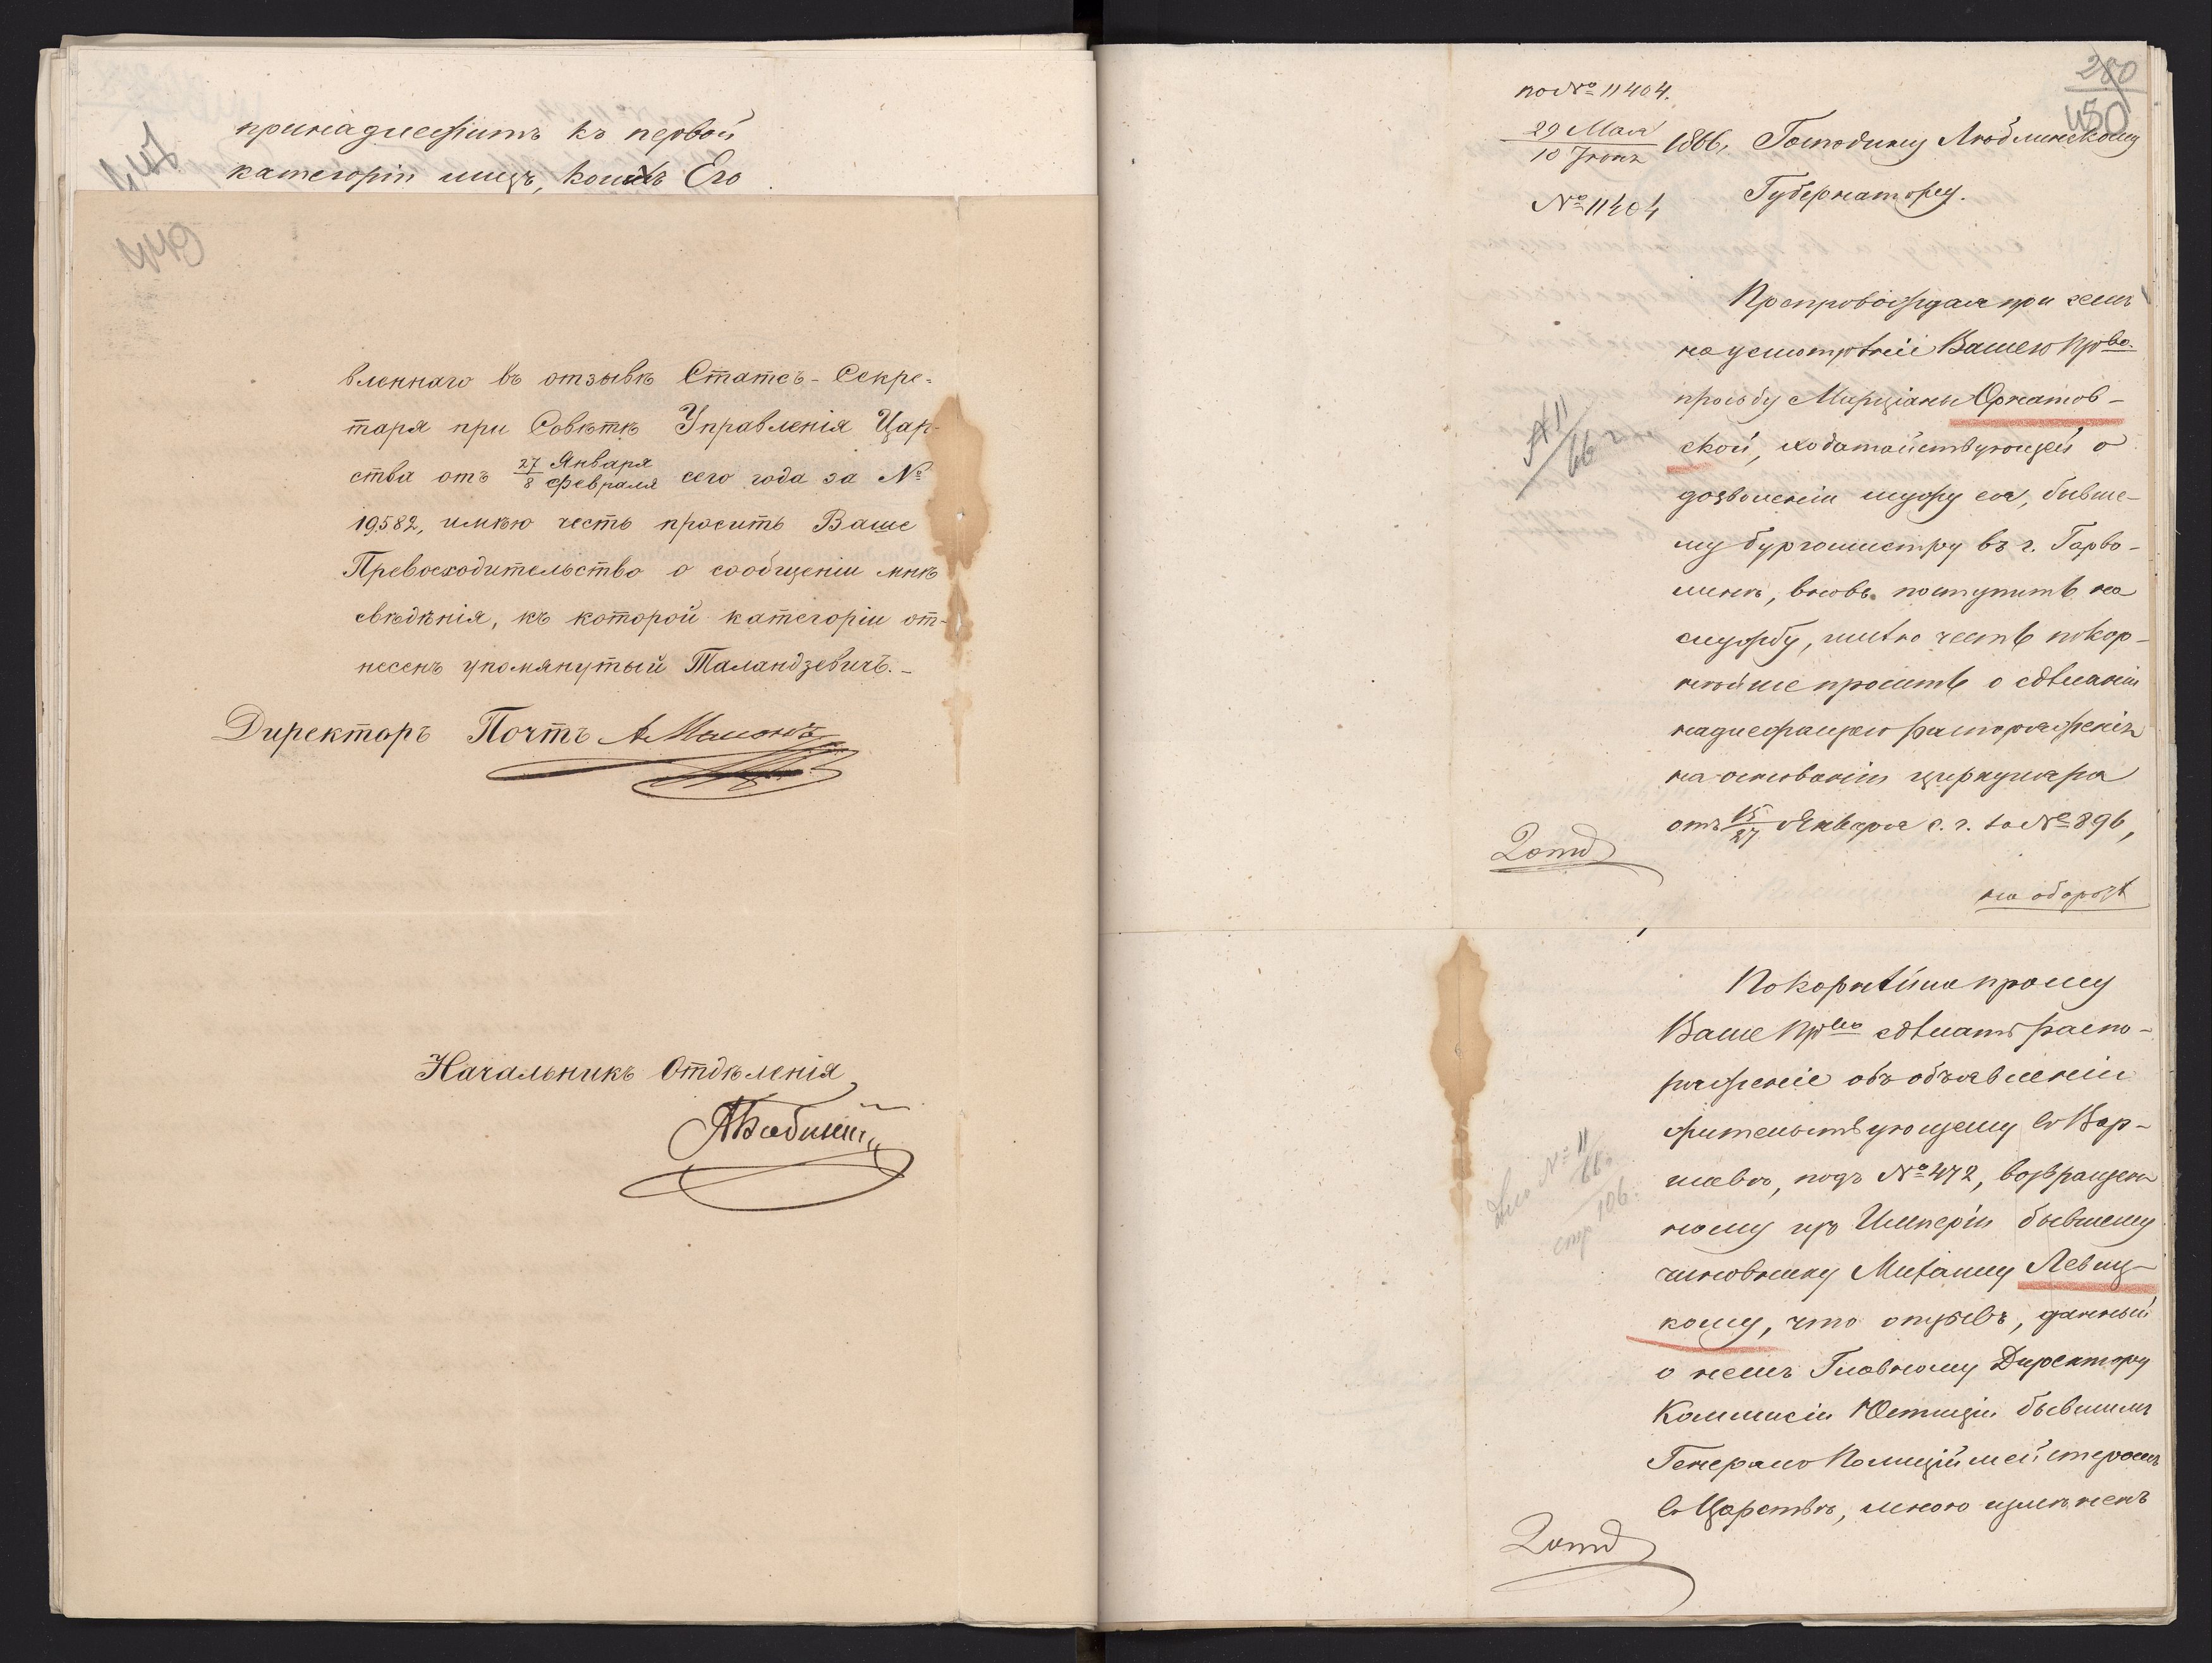 принадлежитъ къ первой
категоріи лицъ, коихъ Его
вленнаго въ отзывѣ Статсъ-Секре-
таря при Совѣтѣ Управленія Цар-
ства отъ 27 Января / 8 Февраля сего года за №
19582, имѣю честь просить Ваше
Превосходительство о сообщеніи мнѣ
свѣдѣнія, къ которой категоріи от-
несенъ упомянутый Таландзевичъ.-
Директоръ Почтъ
Начальникъ Отдѣленія
280
450
по № 11404.
29 Мая / 10 Іюня 1866, Господину Люблинскому
№ 11404 Губернатору.
Препровождая при семъ
на усмотрѣніе Вашего Прво.
просьбу Марціаны Орнатов-
ской, ходатайствующей о
дозволеніи мужу ея, бывше-
му бургомистру въ г. Гарво-
линѣ, вновь поступить на
службу, имѣю честь покор-
нѣйше просить о сдѣланіи
надлежащаго распоряженія
на основаніи циркуляра
отъ 15/27 Января с. г. за № 896,
2 отд
на оборотѣ
Покорнѣйше прошу
Ваше Прво сдѣлать распо-
ряженіе объ объявленіи
жительствующему въ Вар-
шавѣ, подъ № 472, возвращен-
ному изъ Имперіи бывшему
чиновнику Михаилу Левиц-
кому, что отзывъ, данный
о немъ Главному Директору
Коммисіи Юстиціи бывшимъ
Генералъ Полиціймейстеромъ
въ Царствѣ, мною измѣненъ
Дѣло № 11/66.
стр. 106.
2 отд